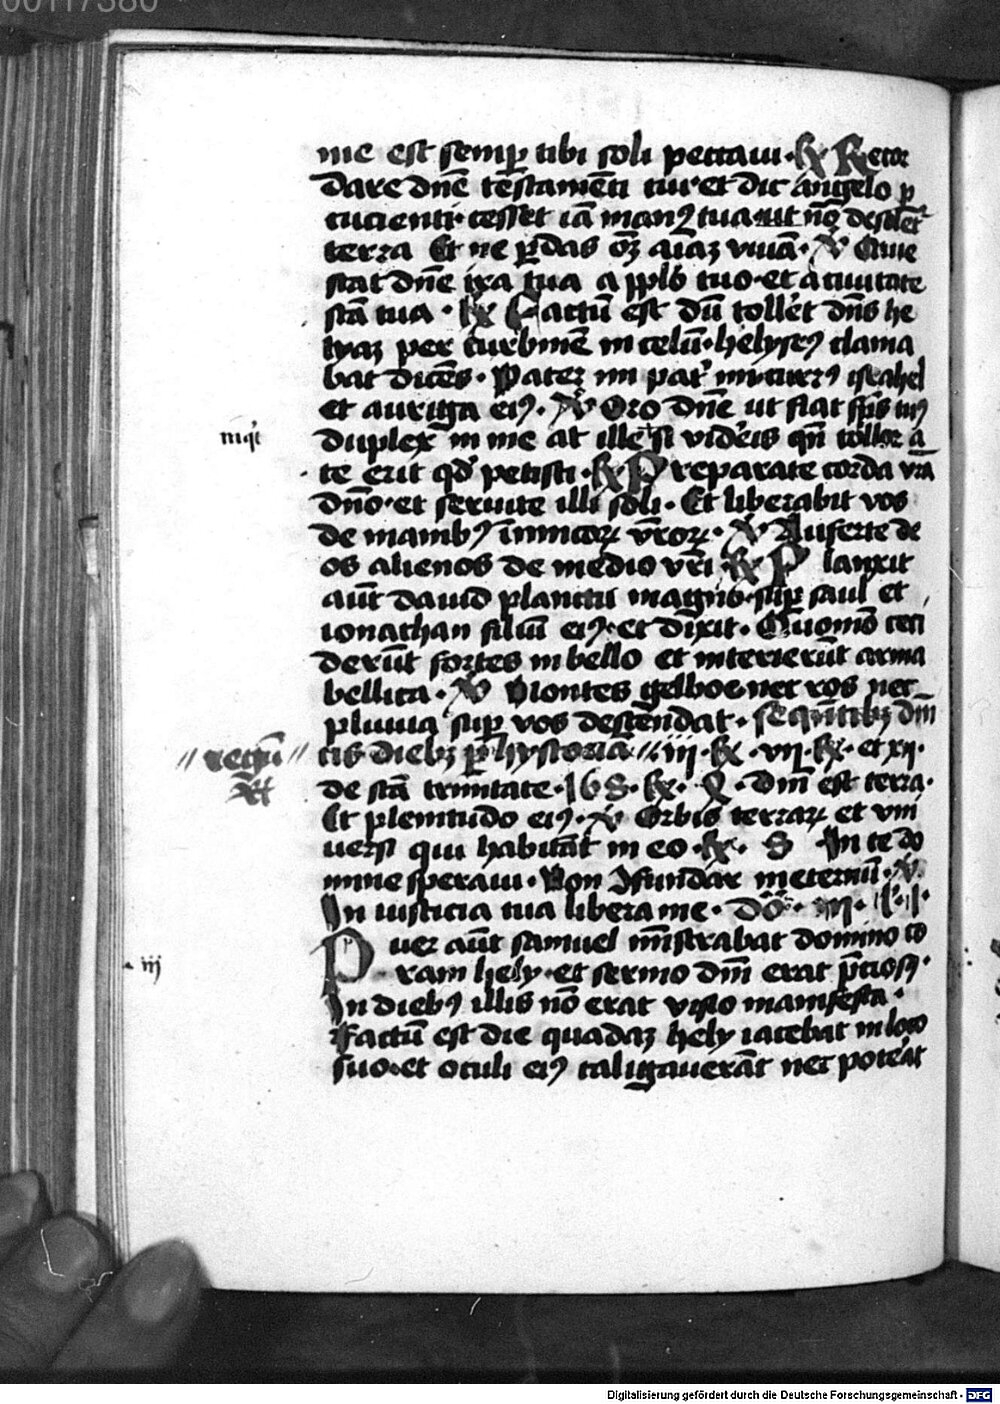 00117380
me est semp̄ tibi soli peccaui · ℟ Recor
dare dn̄e testamēti tui · et dic angelo p̄
cucienti · cesset iā manꝰ tua · ut nō desolet᷑
terra Et ne p̄das oēꝫ aīaꝫ viuā · ℣ Quie
scat dn̄e ira tua a pplō tuo · et a ciuitate
scā tua · ℟ Factū est dū tolleret dn̄s he
lyaꝫ per turbinē in celū · helyseꝰ clama
bat dicēs · Pater mi pat᷑ mi · currꝰ israhel
et auriga eiꝰ · ℣ Oro dn̄e ut fiat sp̄s tuꝰ
duplex in me at ille si videris qn̄ tollor a
te erit qd̓ petisti · ℟ Preparate corda vrā
dn̄o · et seruite illi soli · Et liberabit vos
de manibꝰ inimicoꝝ vr̄oꝝ · ℣ Auferte de
os alienos de medio vr̄i ℟ Planxit
aūt dauid planctū magnū · sup̄ saul et
ionathan filiū eiꝰ · et dixit · Quomō ceci
derūt fortes in bello et interierūt arma
bellica · ℣ Montes gelboe · nec ros nec
pluuia sup̄ vos descendat · sequētibꝫ dīn
// regū // cis diebꝫ p̄ hystoriā // iii · ℟ · vii · ℟ · et xii ·
de scā trinitate · 168 · ℟ · Q · Dn̄i est terra ·
Et plenitudo eiꝰ · ℣ Orbis terraꝝ et vni
uersi qui habitāt in eo · ℟ · S In te do
mine speraui · Non ꝯfundar in eternū · ℣ ·
In iusticia tua libera me · Dō · iii · l · I ·
Puer aūt samuel mīstrabat domino co
iij
ram hely · et sermo dn̄i erat p̄ciosꝰ ·
In diebꝰ illis nō erat visio manifesta ·
Factū est die quadaꝫ hely iacebat in loco
suo · et oculi eiꝰ caligauerāt nec poterāt
Digitalisierung gefördert durch die Deutsche Forschungsgemeinschaft · DFG